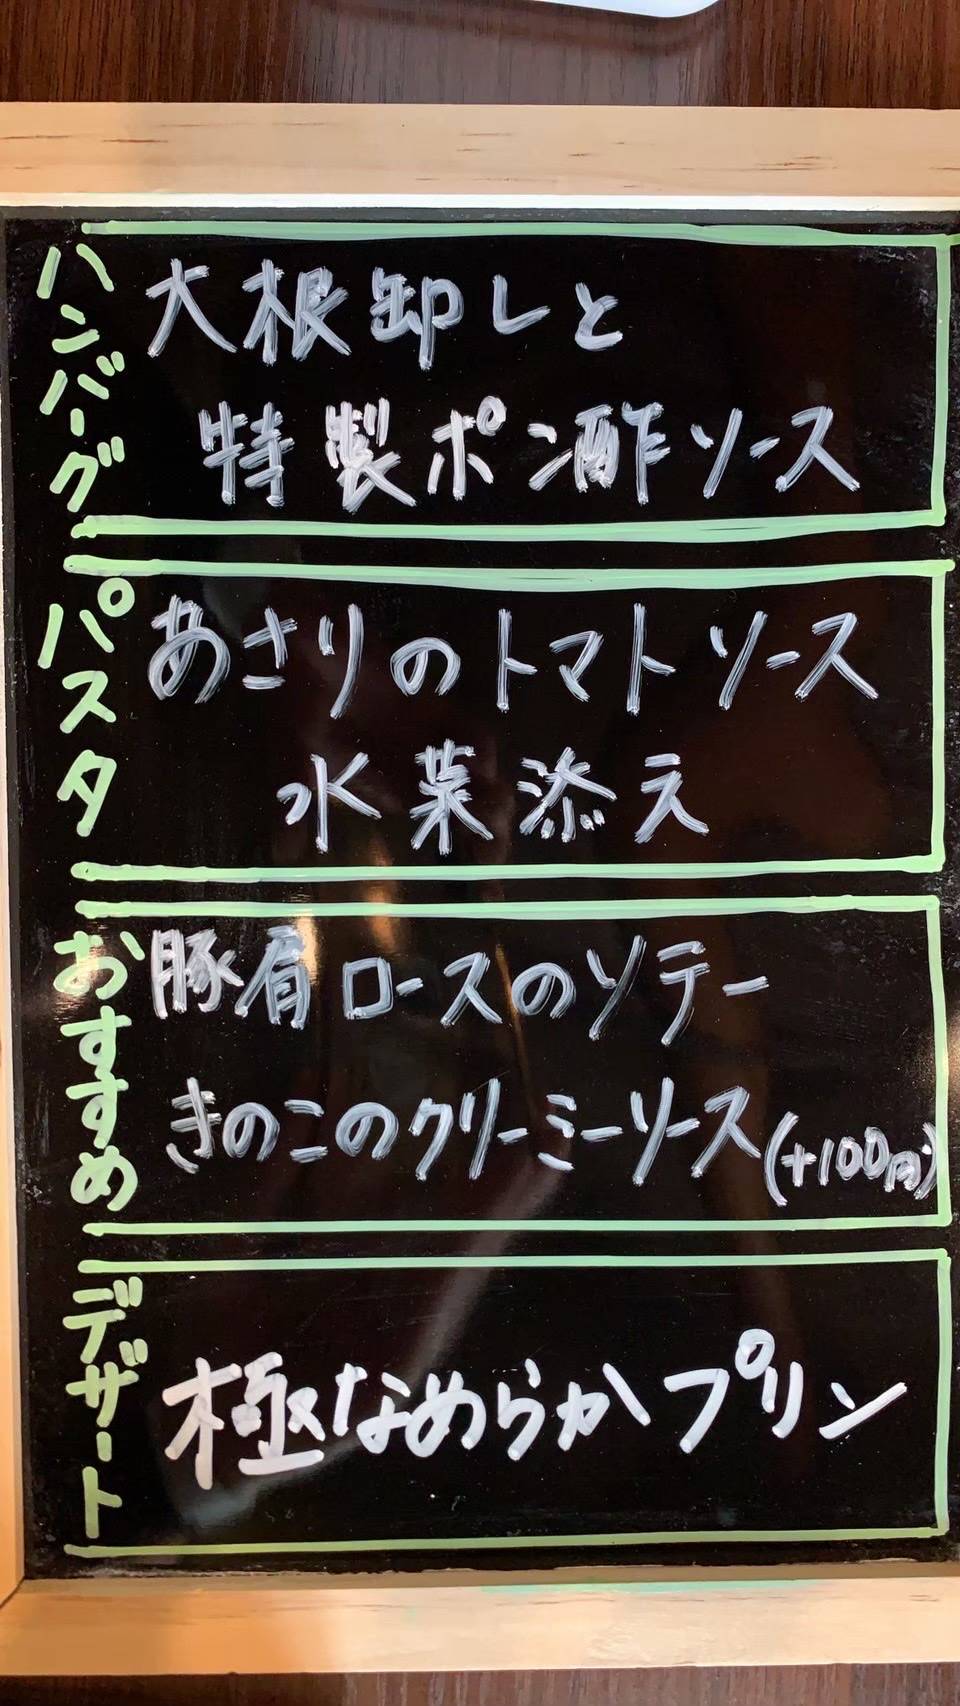 ハンバーグ
大根卸しと
特製ポン酢ソース
パスタ
あさりのトマトソース
水菜添え
おすすめ
豚肩ロースのソテー
きのこのクリーミーソース(+100円)
デザート
極なめらかプリン